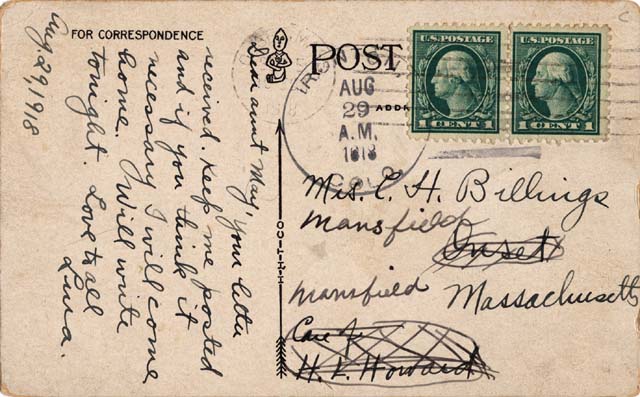 FOR CORRESPONDENCE
Aug. 29, 1918
Dear aunt May, your letter
received. Keep me posted
and if you think it
necessary I will come
home. Will write
tonight Love to all
Lura.
OCTITHI
POST
ADDR
AUG
29
A.M.
1918
COLO
U.S. POSTAGE
1 CENT 1
U.S. POSTAGE
1 CENT 1
Mrs. C. H. Billings
Mansfield
Onset
Mansfield Massachusetts
Care of
H. L. Howard.